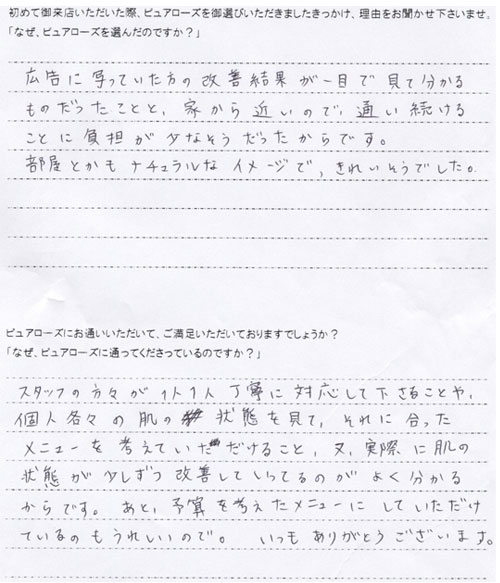 初めて御来店いただいた際、ピュアローズを御選びいただきましたきっかけ、理由をお聞かせ下さいませ。
「なぜ、ピュアローズを選んだのですか？」
広告に写っていた方の改善結果が一目で見て分かる
ものだったことと、家から近いので、通い続ける
ことに負担が少なそうだったからです。
部屋とかもナチュラルなイメージで、きれいそうでした。
ピュアローズにお通いいただいて、ご満足いただいておりますでしょうか？
「なぜ、ピュアローズに通ってくださっているのですか？」
スタッフの方々が1人1人丁寧に対応して下さることや、
個人各々の肌の状態を見て、それに合った
メニューを考えていただけること、又、実際に肌の
状態が少しずつ改善していってるのがよく分かる
からです。あと、予算を考えたメニューにしていただけ
ているのもうれしいので。いつもありがとうございます。